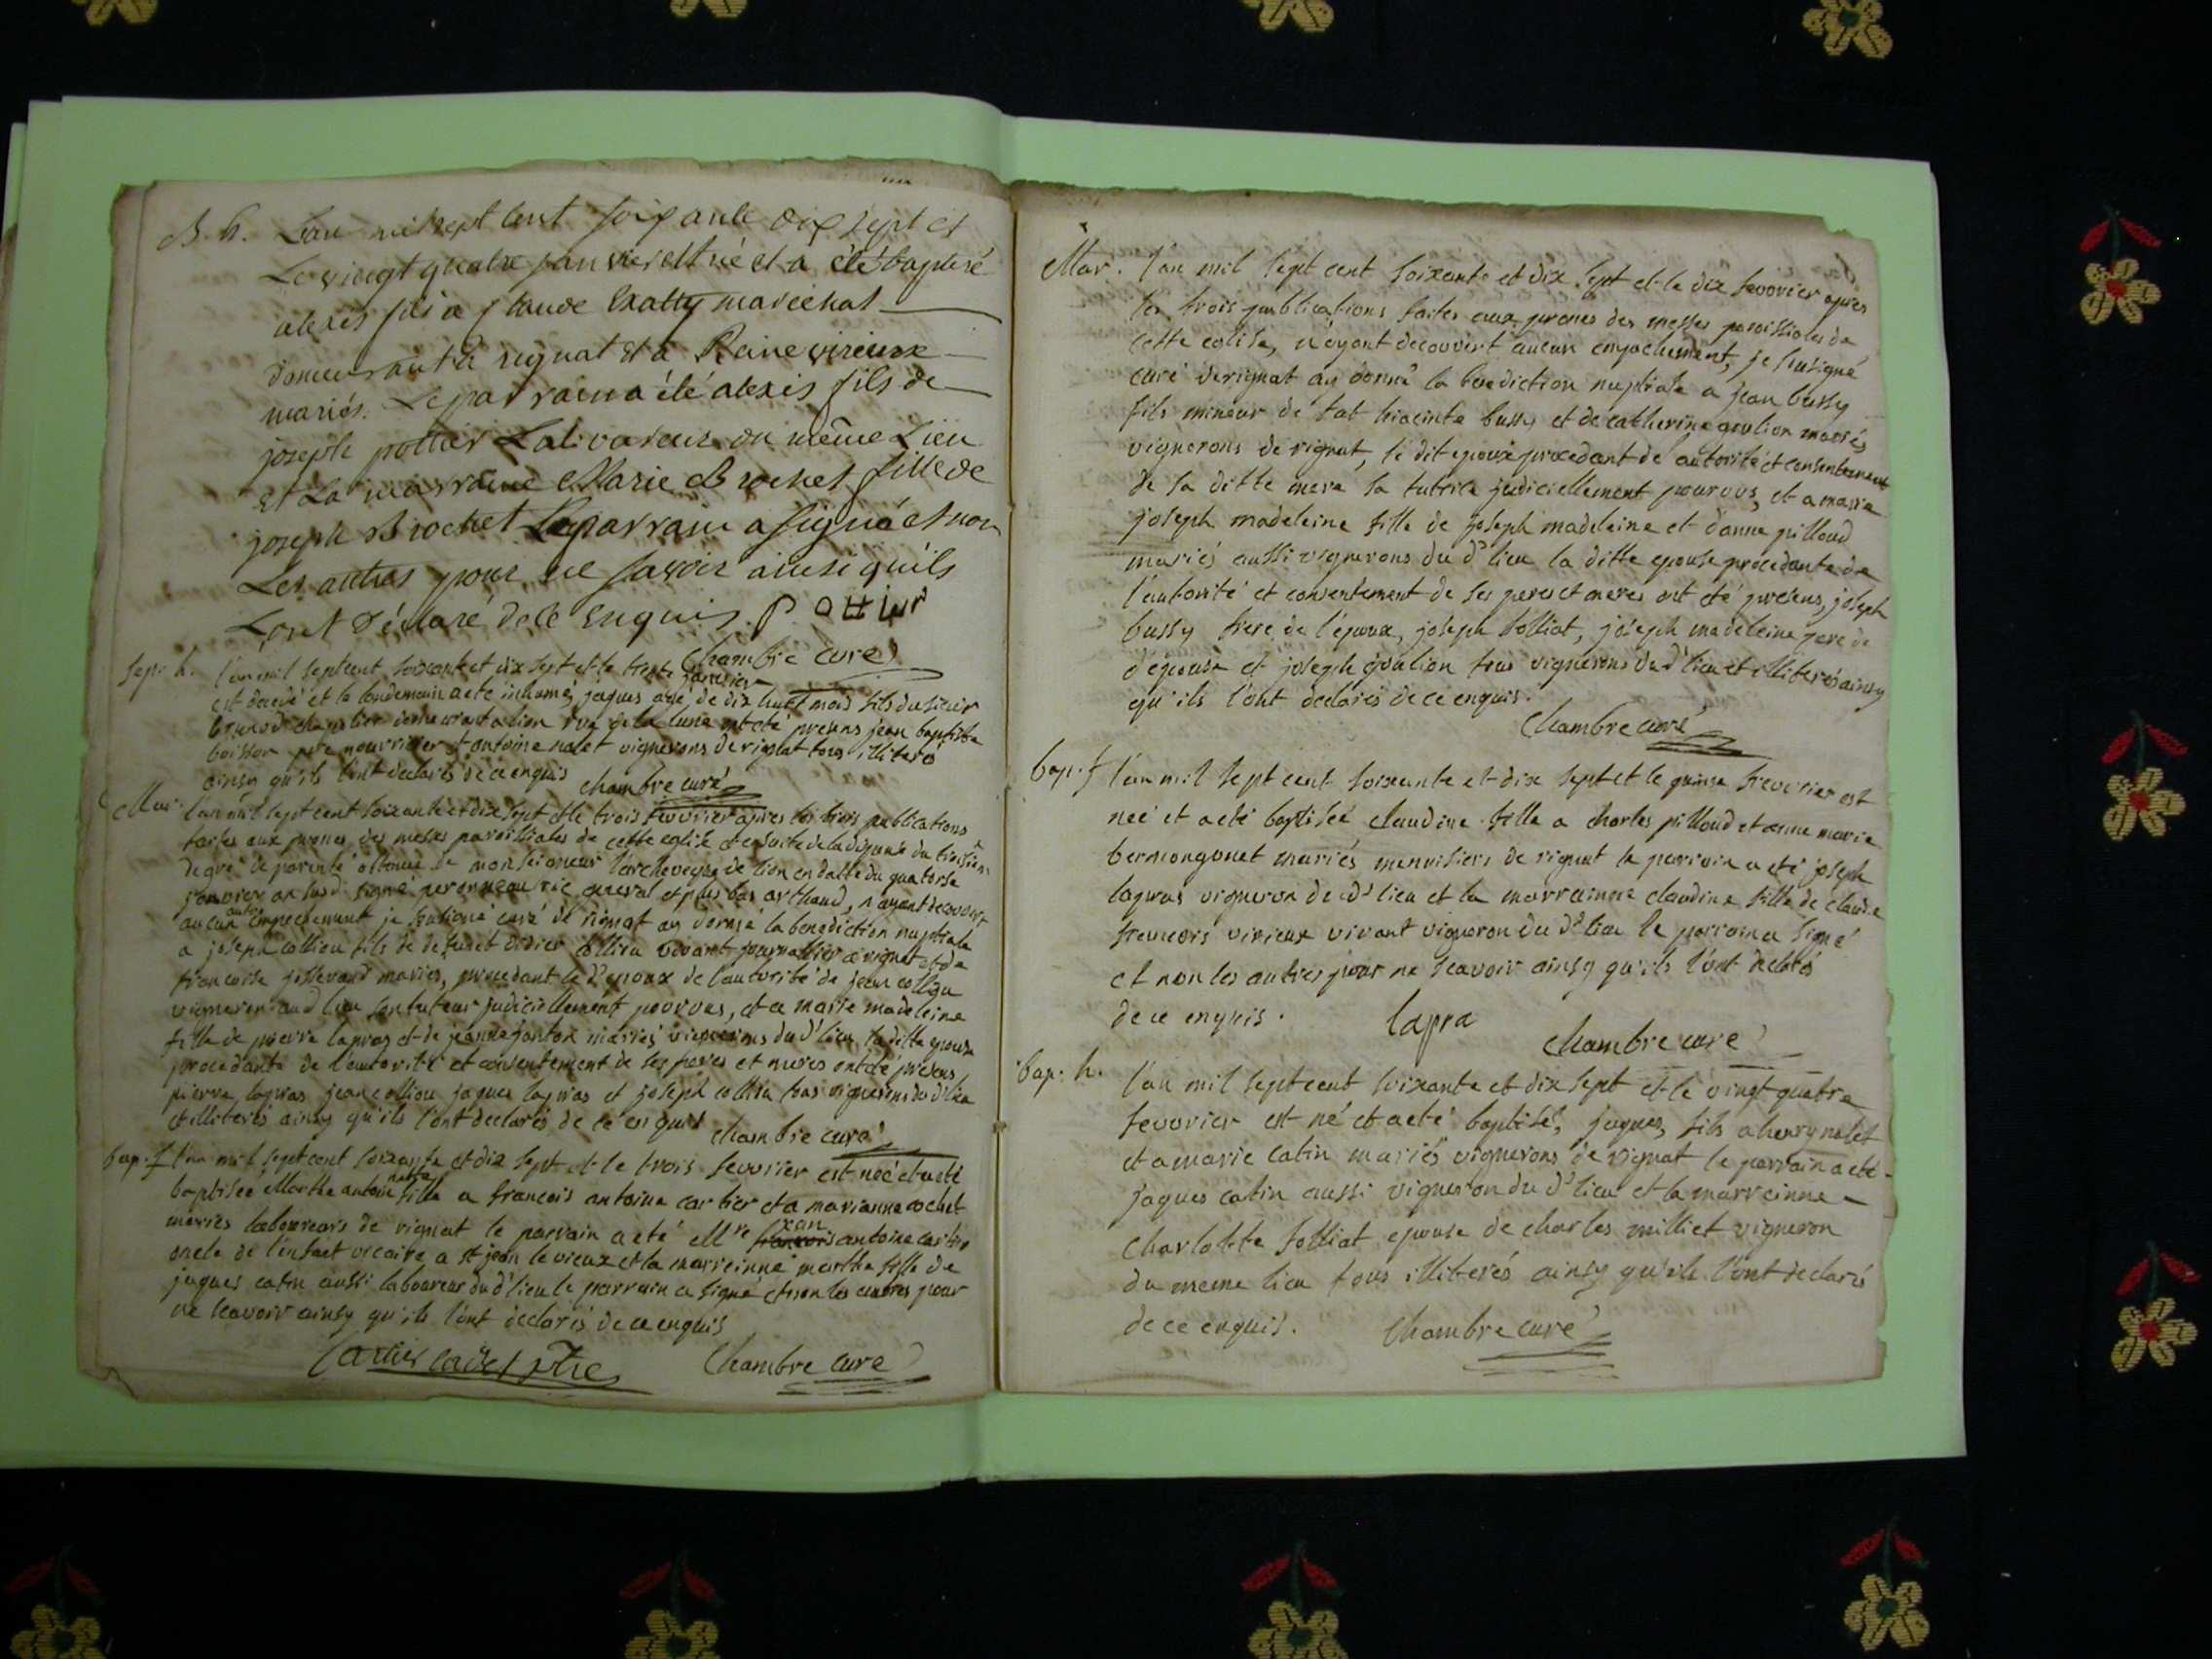 B. h. L'an mil sept cent soixante dix sept et
Le vingt quatre janvier est né et a été baptisé
alexis fils a claude Exatty marechal
demeurant a rignat et a Reine virieux
mariés. Le parrain a été alexis fils de
joseph pottier Laboureur du même Lieu
et La marraine Marie Brochet fille de
joseph Brochet Le parrain a signé et non
Les autres pour ne savoir ainsi qu'ils
L'ont déclaré de ce enquis. P ottier
Chambre curé
Sep. h. l'an mil sept cent soixante et dix sept et le trente janvier
est decedé et le lendemain a eté inhumé, jaques agé de dix huit mois fils du sieur
demeurant a lion rue de la lune ont eté presens jean baptiste
boisson pere nourricier et antoine nalet vignerons de rignat tous illiterés
ainsy qu'ils l'ont declarés de ce enquis chambre curé
Mar. l'an mil sept cent soixante et dix sept et le trois fevvrier apres les trois publications
faites aux prones des messes paroissiales de cette eglise et ensuite de la dispense du troisiem
degré de parenté obtenue de monseigneur l'archeveque de lion en datte du quatorse
janvier an susd signé vic general et plus bas arthaud, n'ayant decouvert
aucun autre empechement je soussigné curé de rignat ay donné la benediction nuptiale
a joseph collieu fils de defunct didier collieu vivant journallier a rignat et de
francoise josserand mariés, procedant le dt epoux de l'autorité de jean collieu
vigneron aud lieu son tuteur judiciellement pourvus, et a marie madeleine
fille de pierre lapras et de jeanne janton mariés vignerons du dt lieu la ditte epouse
procedante de l'autorité et consentement de ses peres et meres ont eté presens
pierre lapras jean collieu jaques lapras et joseph collieu tous vignerons du dt lieu
et illiterés ainsy qu'ils l'ont declarés de ce enquis chambre curé
bap. f l'an mil sept cent soixante et dix sept et le trois fevvrier est neé et a eté
baptiseé Marthe antoinette fille a francois antoine cartier et a marianne cochet
mariés laboureurs de rignat le parrain a eté Mre antoine cartier
oncle de l'enfant vicaire a st jean le vieux et la marreinne marthe fille de
jaques catin aussi laboureur du dt lieu le parrain a signé et non les autres pour
ne scavoir ainsy qu'ils l'ont declarés de ce enquis
Cartier cadet ptre Chambre curé
Mar. l'an mil sept cent soixante et dix sept et le dix fevvrier apres
les trois publications faites aux prones des messes paroissiales de
cette eglise, n'ayant decouvert aucun empechement, je soussigné
curé de rignat ay donné la benediction nuptiale a jean bussy
fils mineur de fut hiacinte bussy et de catherine goulion mariés
vignerons de rignat, le dit epoux procedant de l'autorité et consentement
de sa ditte mere sa tutrice judiciellement pourvus, et a marie
joseph madeleine fille de joseph madeleine et d'anne pilloud
mariés aussi vignerons du dt lieu la ditte epouse procedante de
l'autorité et consentement de ses peres et meres ont eté presens joseph
bussy frere de l'epoux, joseph folliat, joseph madeleine pere de
l'epouse et joseph goulion tous vignerons du dt lieu et illiterés ainsy
qu'ils l'ont declarés de ce enquis.
Chambre curé
bap. f l'an mil sept cent soixante et dix sept et le quinse fevvrier est
neé et a eté baptiseé claudine fille a charles pilloud et anne marie
bermongonet mariés menuisiers de rignat le parrain a eté joseph
lapras vigneron de dt lieu et la marreinne claudine fille de claude
francois virieux vivant vigneron du dt lieu le parrain a signé
et non les autres pour ne scavoir ainsy qu'ils l'ont declarés
de ce enquis. lapra
Chambre curé
bap. h. l'an mil sept cent soixante et dix sept et le vingt quatre
fevvrier est né et a eté baptisé, jaques, fils a henry nalet
et a marie catin mariés vignerons de rignat le parrain a eté
jaques catin aussi vigneron du dt lieu et la marreinne
charlotte folliat epouse de charles milliet vigneron
du meme lieu tous illiterés ainsy qu'ils l'ont declarés
de ce enquis. Chambre curé